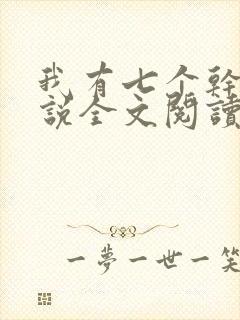 我有七个幹
說全文閱讀
一夢一世一笑